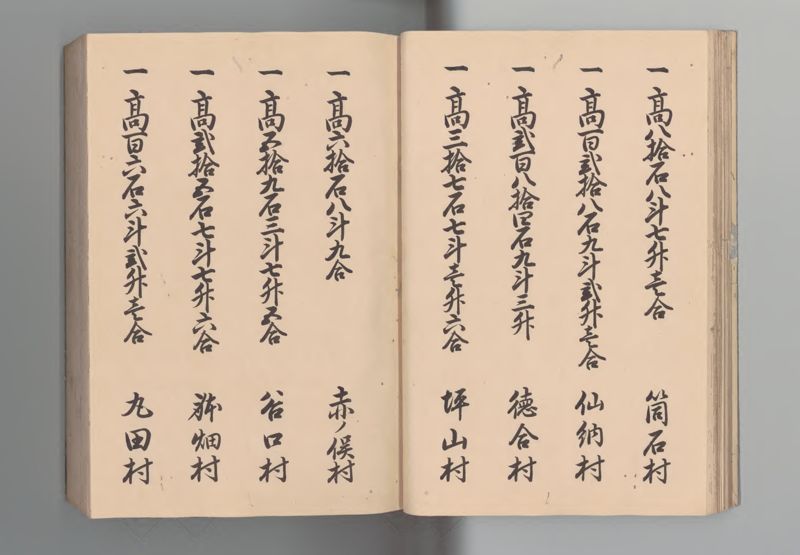 一高八拾石八斗七升壱合 筒石村
一高百弐拾八石九斗弐升壱合 仙納村
一高弐百八拾四石九斗三升 徳合村
一高三拾七石七斗壱升六合 坪山村
一高六拾石八斗九合 赤ノ俣村
一高五拾九石三斗七升五合 谷口村
一高弐拾五石七斗七升六合 畑村
一高百六石六斗弐升壱合 丸田村